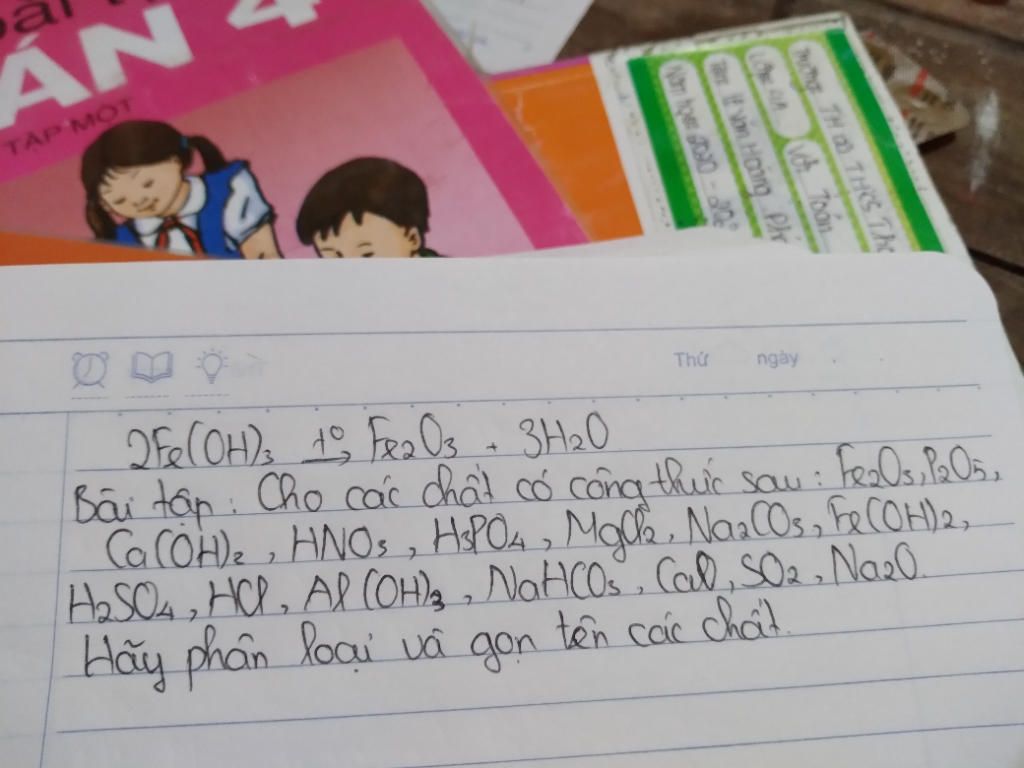 ÁN 4
TẬP MỘT
Trường TH
Lớp 4A Vở Toán
Tên: Lê Văn Hoàng
Năm học 2020 -
Thứ ngày
2Fe(OH)₃ t° → Fe₂O₃ + 3H₂O
Bài tập: Cho các chất có công thức sau: Fe₂O₃, P₂O₅,
Ca(OH)₂, HNO₃, H₃PO₄, MgCl₂, Na₂CO₃, Fe(OH)₂,
H₂SO₄, HCl, Al(OH)₃, NaHCO₃, CaO, SO₂, Na₂O.
Hãy phân loại và gọn tên các chất.